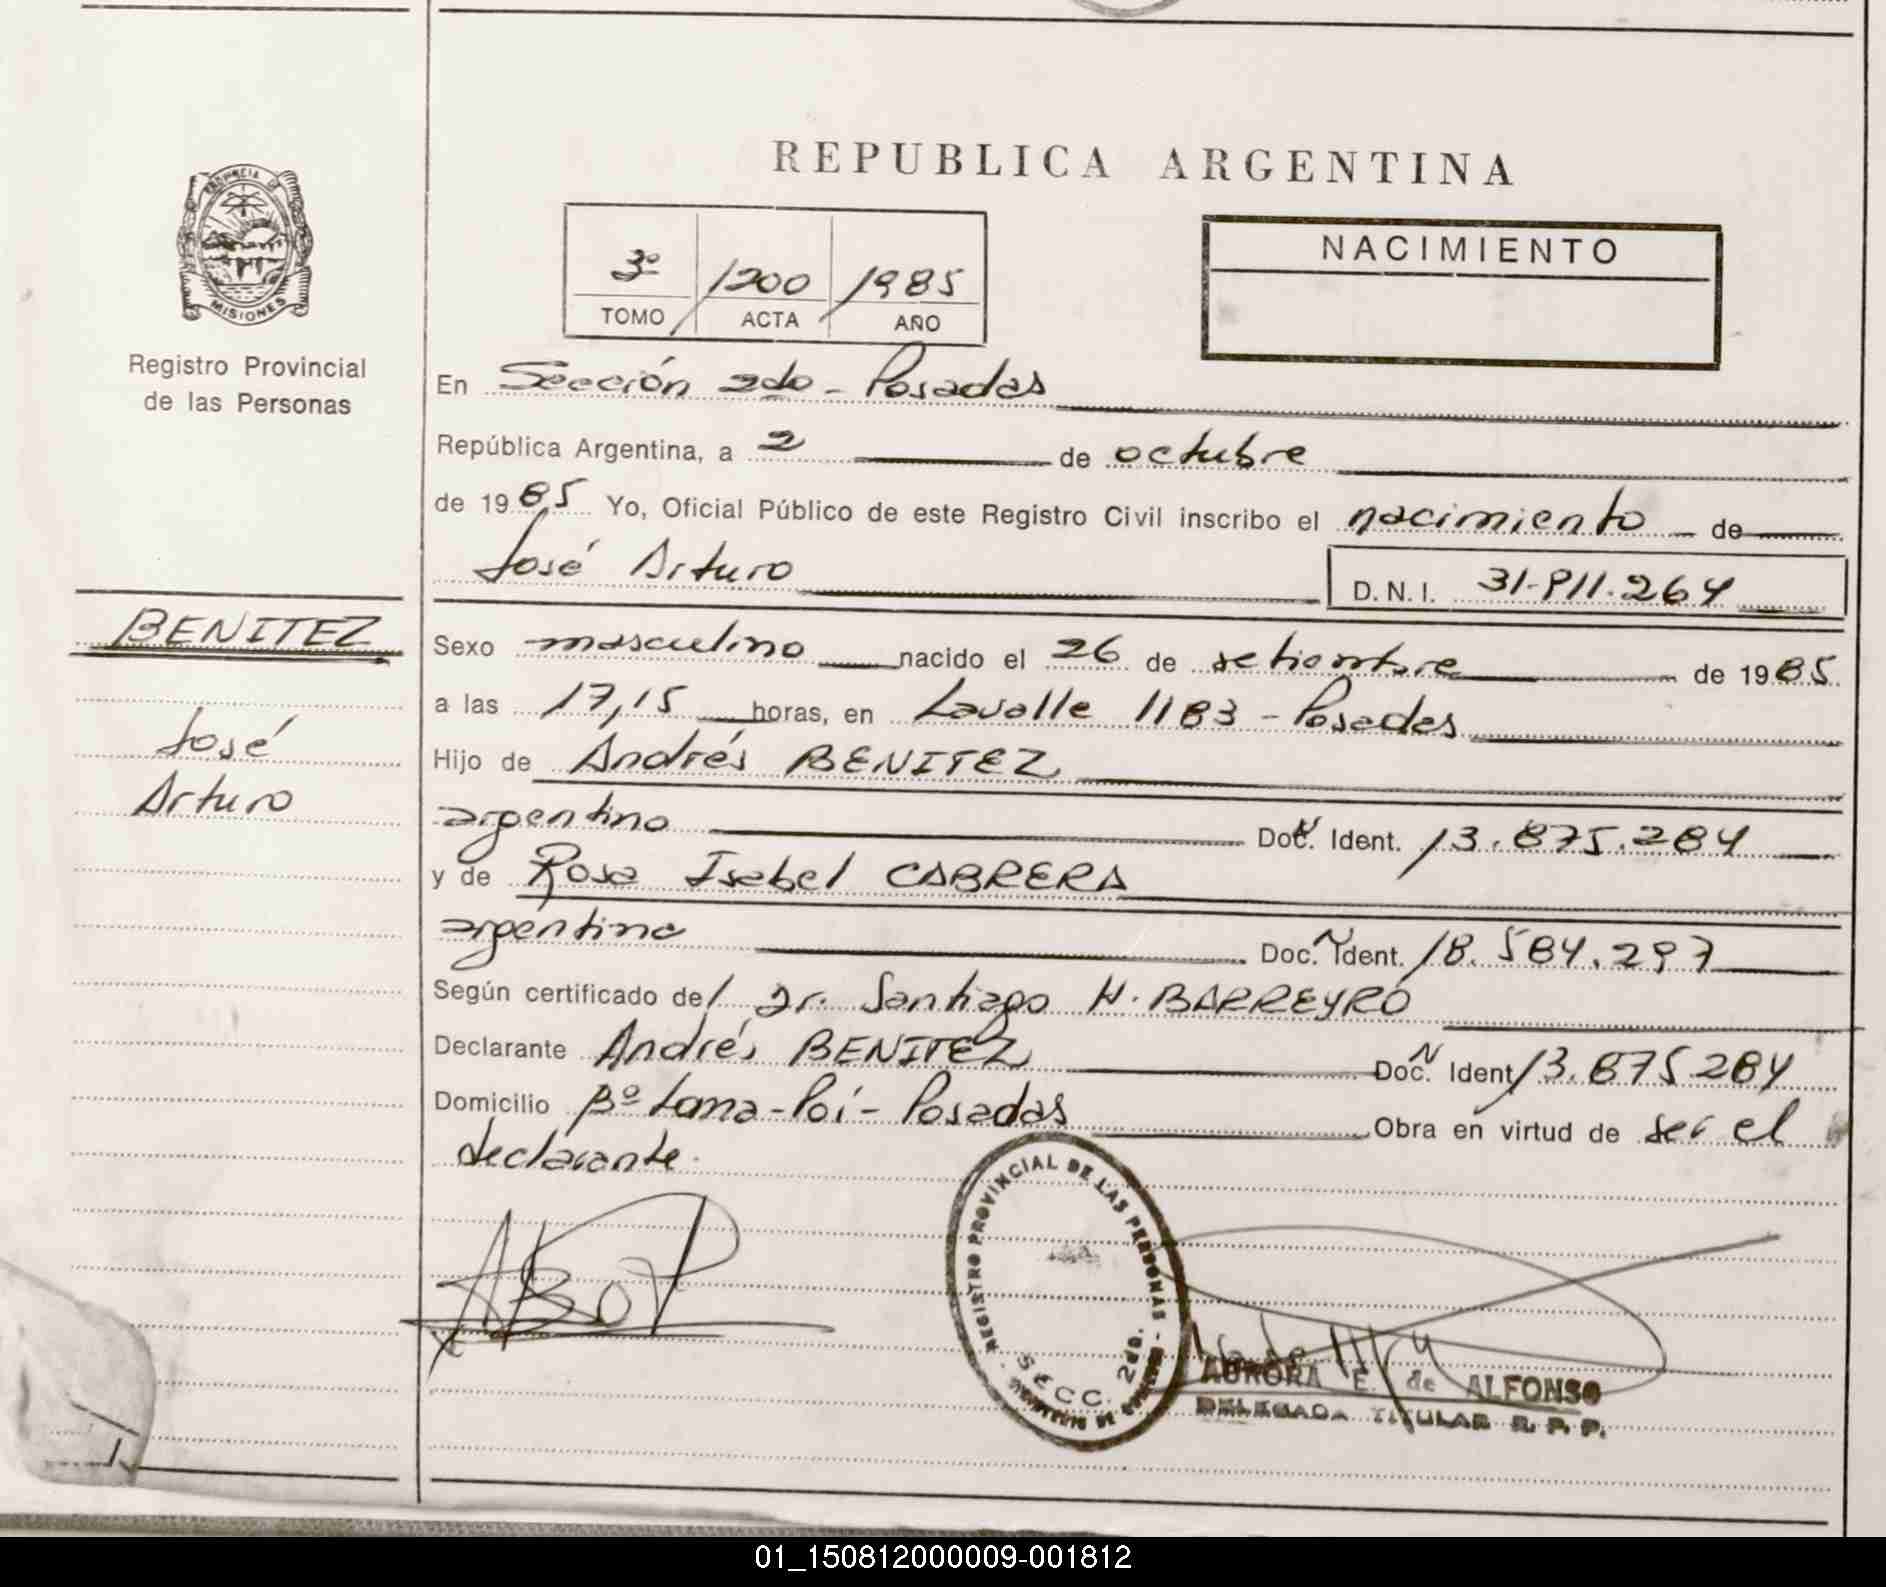 REPUBLICA ARGENTINA
PROVINCIA DE
MISIONES
Registro Provincial
de las Personas
3º /1200 /1985
TOMO ACTA AÑO
NACIMIENTO
En Sección 2da - Posadas
República Argentina, a 2 de octubre
de 1985 Yo, Oficial Público de este Registro Civil inscribo el nacimiento de
José Arturo D. N. I. 31.911.264
BENITEZ
José
Arturo
Sexo masculino nacido el 26 de setiembre de 1985
a las 17,15 horas, en Lavalle 1183 - Posadas
Hijo de Andrés BENITEZ
argentino Doc. N Ident. 13.875.284
y de Rosa Isabel CABRERA
argentina Doc. N Ident. 18.584.297
Según certificado del Dr. Santiago H. BARREYRO
Declarante Andrés BENITEZ Doc. N Ident 13.875.284
Domicilio Bº Loma-Poi - Posadas Obra en virtud de ser el
declarante.
REGISTRO PROVINCIAL DE LAS PERSONAS
SECC. 2da.
AURORA E. de ALFONSO
DELEGADA TITULAR R. P. P.
01_150812000009-001812